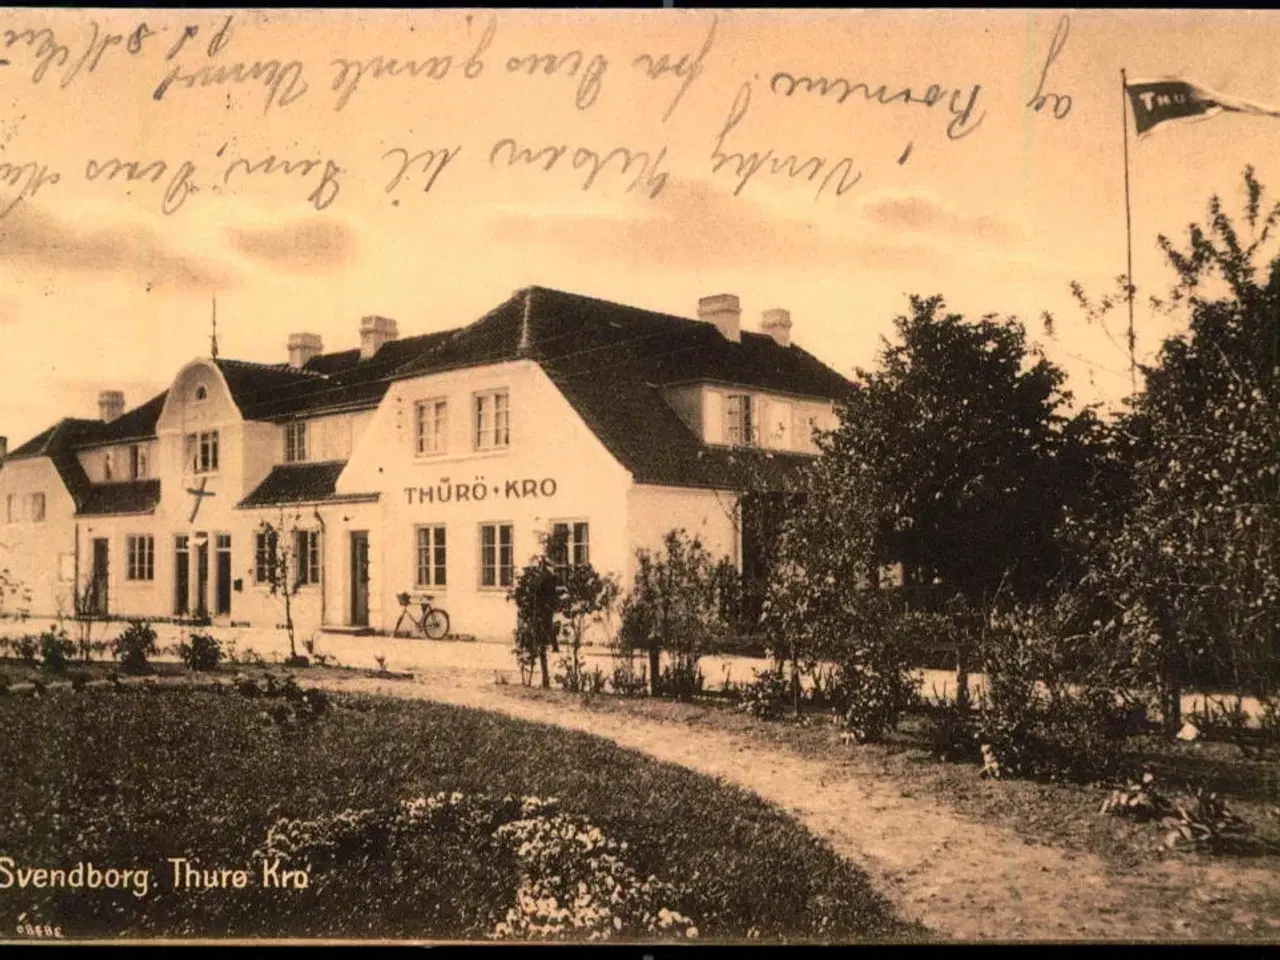 Venlig Hilsen til Dem, Deres
og Børnene! fra Deres gamle
THU
THŰRÖ·KRO
Svendborg. Thurø Kro